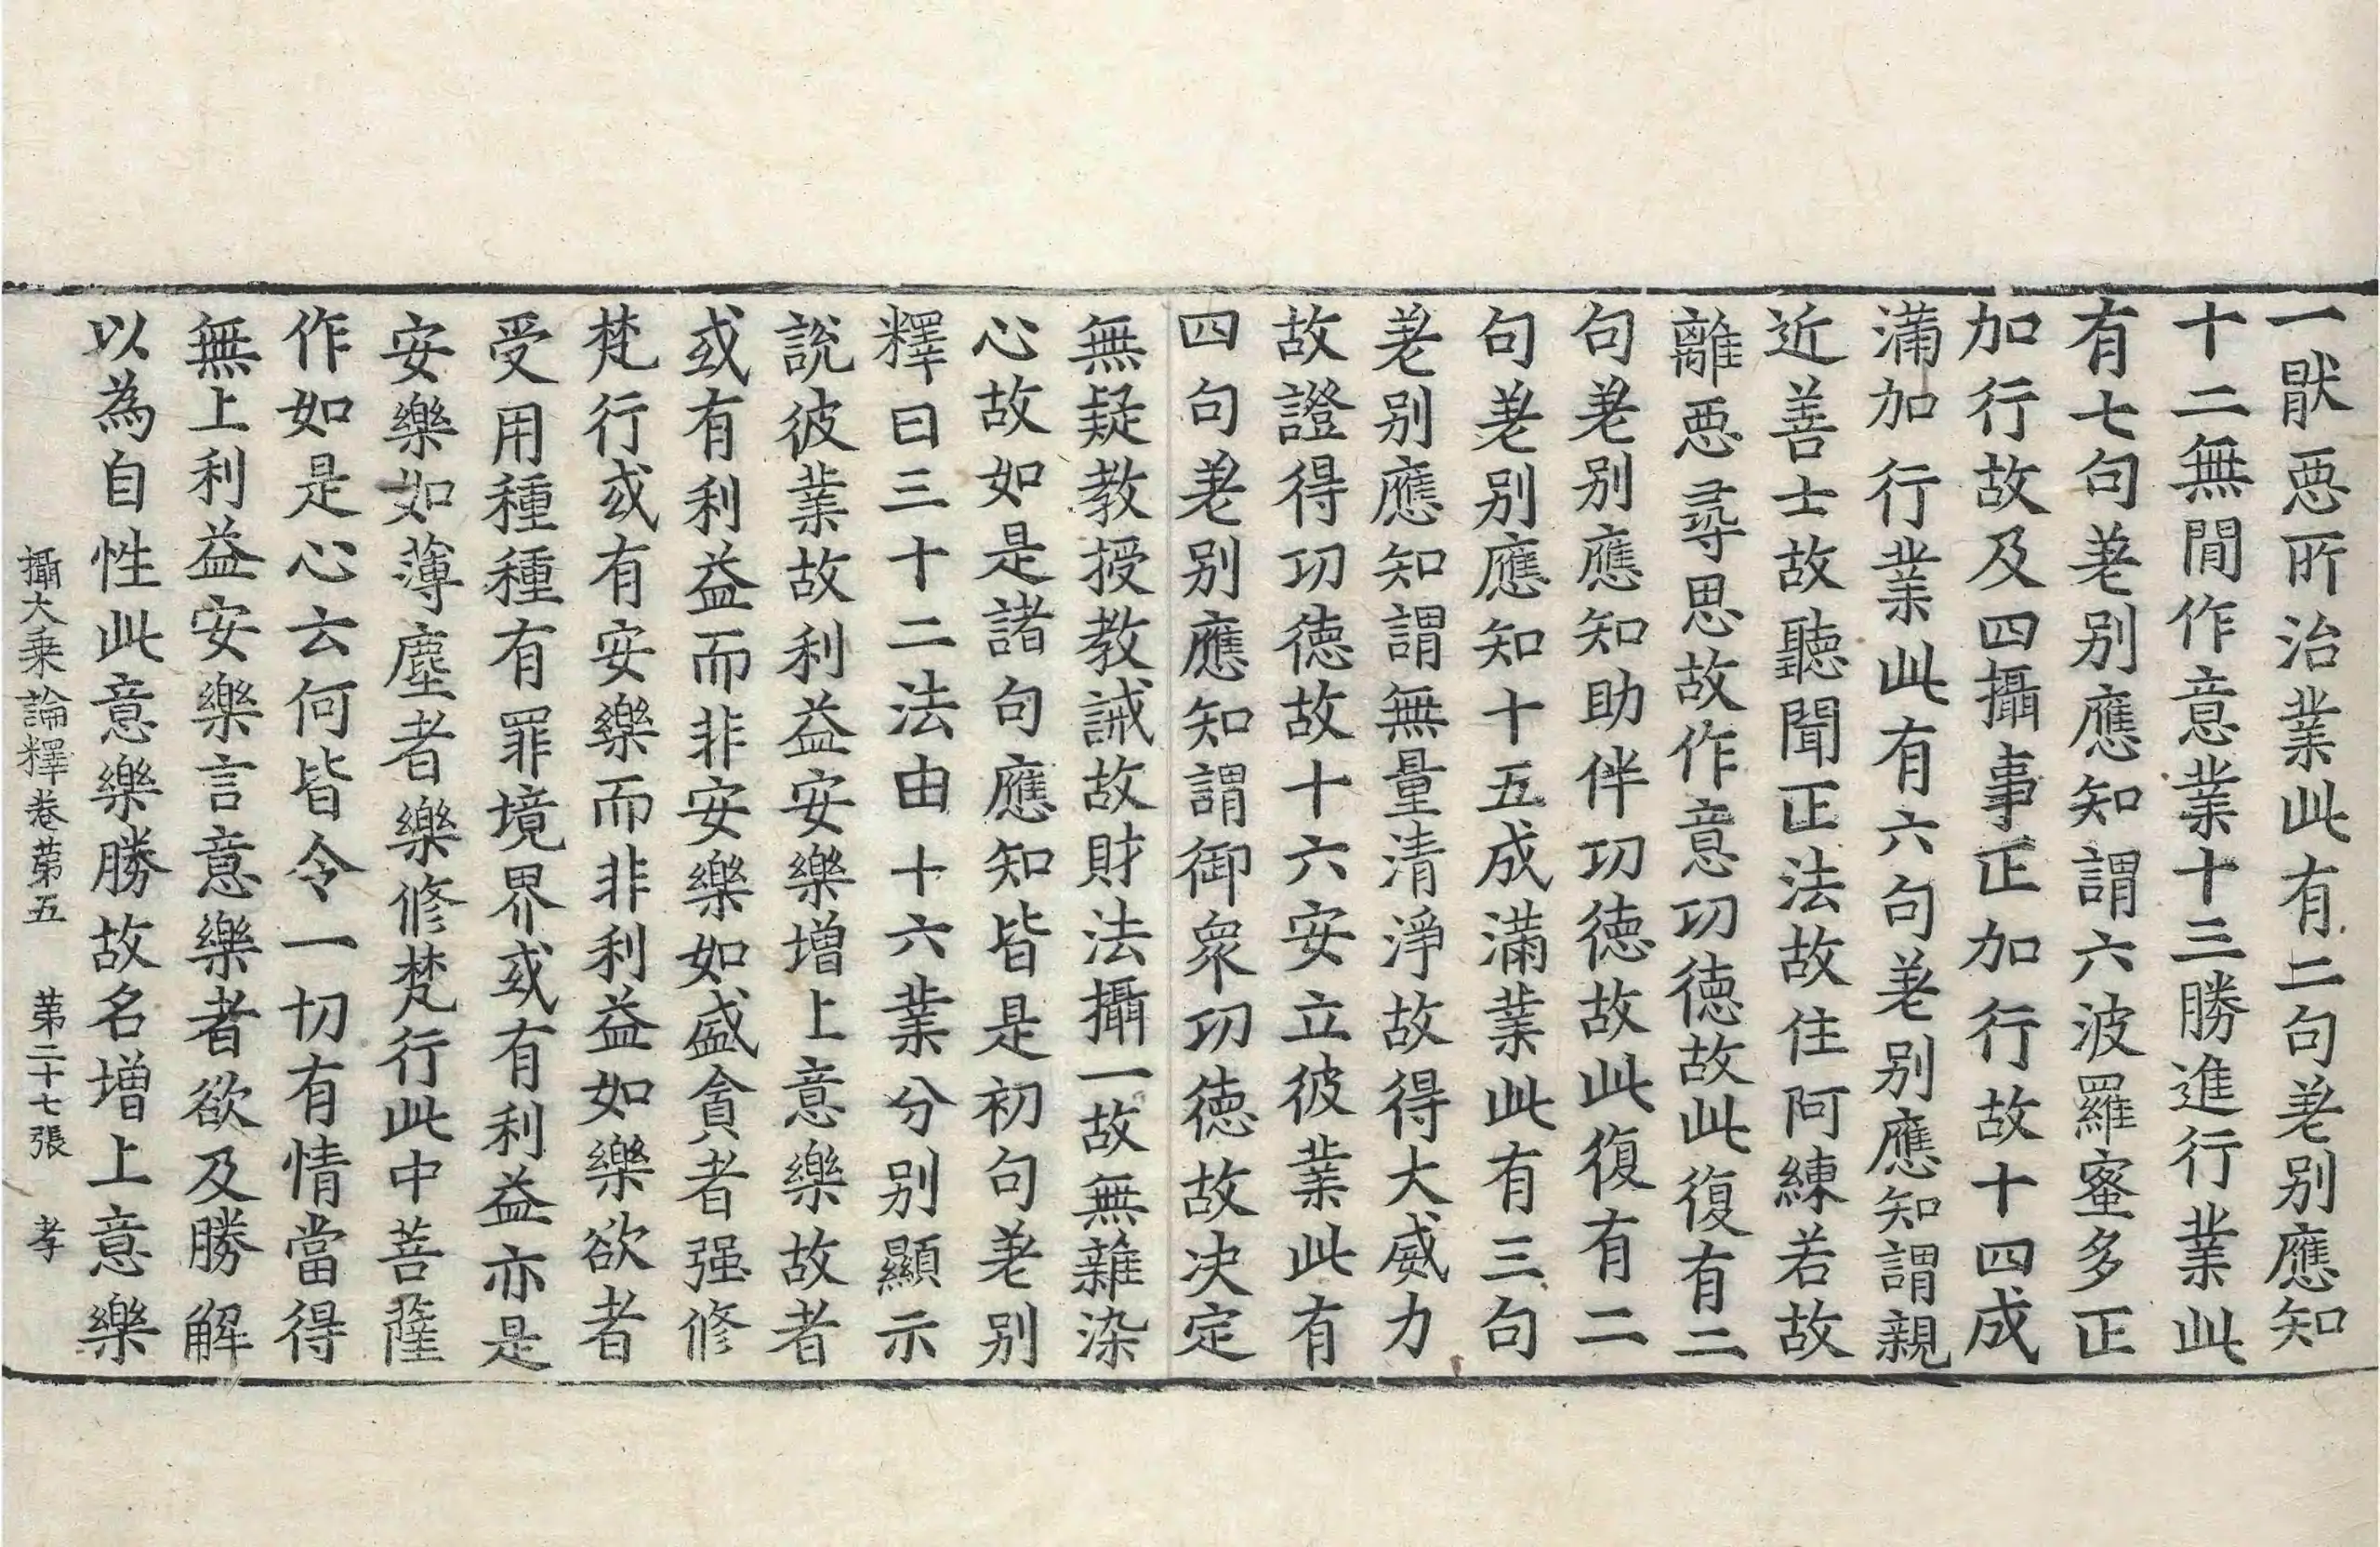 一猒惡所治業此有二句差别應知
十二無間作意業十三勝進行業此
有七句差别應知謂六波羅蜜多正
加行故及四攝事正加行故十四成
滿加行業此有六句差别應知謂親
近善士故聽聞正法故住阿練若故
離惡尋思故作意功德故此復有二
句差别應知助伴功德故此復有二
句差别應知十五成滿業此有三句
差别應知謂無量清淨故得大威力
故證得功德故十六安立彼業此有
四句差别應知謂御衆功德故决定
無疑教授教誡故財法攝一故無雜染
心故如是諸句應知皆是初句差别
釋曰三十二法由十六業分别顯示
說彼業故利益安樂增上意樂故者
或有利益而非安樂如盛貪者强修
梵行或有安樂而非利益如樂欲者
受用種種有罪境界或有利益亦是
安樂如薄塵者樂修梵行此中菩薩
作如是心云何皆令一切有情當得
無上利益安樂言意樂者欲及勝解
以為自性此意樂勝故名增上意樂
攝大乗論釋卷苐五　苐二十七張　孝